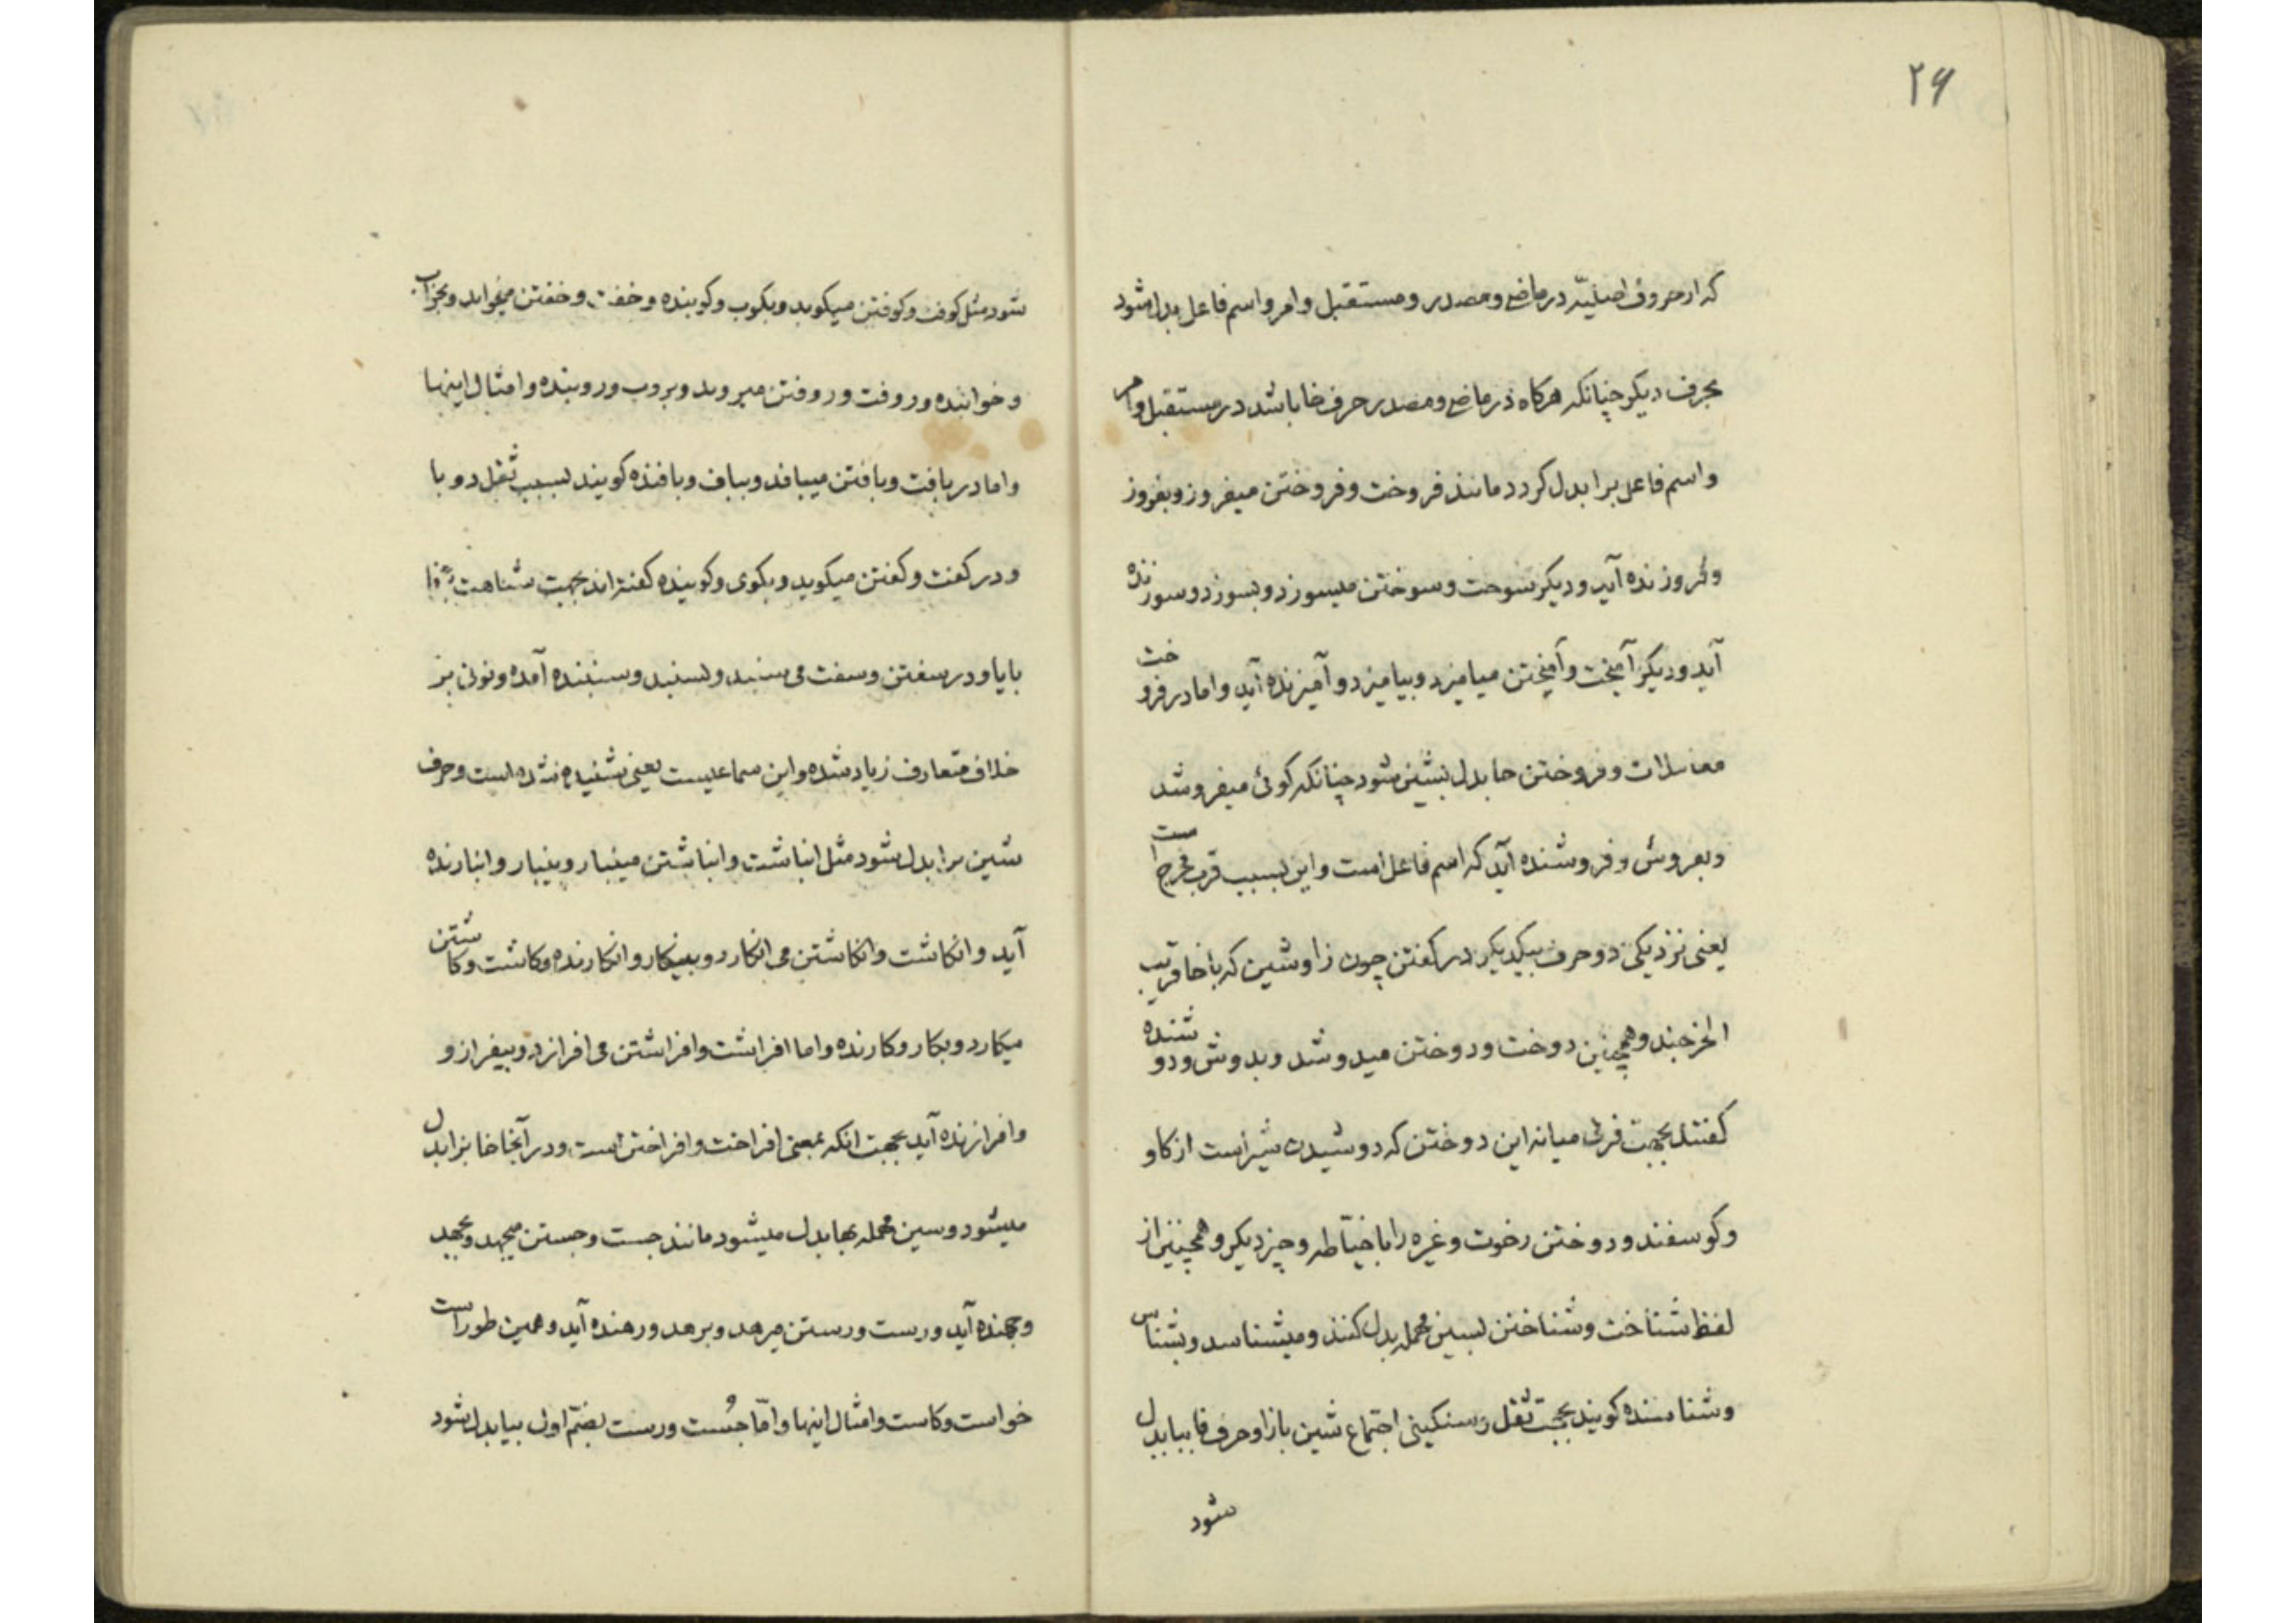 ۲۶
که از حروف اصلیّه در ماضی و مصدر و مستقبل و امر و اسم فاعل بدل شود
بحرف دیکر چنانکه هرکاه در ماضی و مصدر حرف خا باشد در مستقبل و امر
و اسم فاعل بزا بدل کردد مانند فروخت و فروختن میفروز و بفروز
و فروزنده آید و دیکر سوخت و سوختن میسوزد و بسوزد و سوزنده
آید و دیکر آمیخت و آمیختن میامیزد و بیامیزد و آمیزنده آید و اما در فروخت
معاملات و فروختن خا بدل بشین شود چنانکه کوئی میفروشد
و بفروش و فروشنده آید که اسم فاعل است و این بسبب قرب مخرج است
یعنی نزدیکی دو حرف بیکدیکر در کفتن چون زا و شین که با خا قریب
المخرجند و همچنین دوخت و دوختن میدوشد و بدوش و دوشنده
کفتند بجهت فرق میانه این دوختن که دوشیدن شیر است از کاو
و کوسفند و دوختن رخوت و غیره را با خیّاطه و چیز دیکر و همچنین از
لفظ شناخت و شناختن بسین مهمله بدل کنند و میشناسد و بشناس
و شناسنده کویند بجهت ثقل و سنکینی اجتماع شین با زا و حرف فا ببا بدل
شود
شود مثل کوفت و کوفتن میکوبد و بکوب و کوبنده و خفت و خفتن میخوابد و بخواب
و خوابنده و روفت و روفتن میروبد و بروب و روبنده و امثال اینها
و اما در بافت و بافتن میبافد و بباف و بافنده کویند بسبب ثقل دو با
و در کفت و کفتن میکوید و بکوی و کوینده کفته‌اند بجهت شباهت
با یا و در سفتن و سفت می سنبد و بسنبد و سنبنده آمده و نونی بر
خلاف متعارف زیاد شده و این سماعیست یعنی شنیده شده است و حرف
شین برا بدل شود مثل انباشت و انباشتن مینبار و بنبار و انبارنده
آید و انکاشت و انکاشتن می انکارد و بینکار و انکارنده و کاشت و کاشتن
میکارد و بکار و کارنده و اما افراشت و افراشتن می افرازد و بیفراز و
و افرازنده آید بجهت انکه بمعنی افراخت و افراختن است و در آنجا خا بزا بدل
میشود و سین مهمله بها بدل میشود مانند جست و جستن میجهد و بجهد
و جهنده آید و رست و رستن میرهد و برهد و رهنده آید و همین طور است
خواست و کاست و امثال اینها و امّا جُست و رست بضمّ اول بیا بدل شود